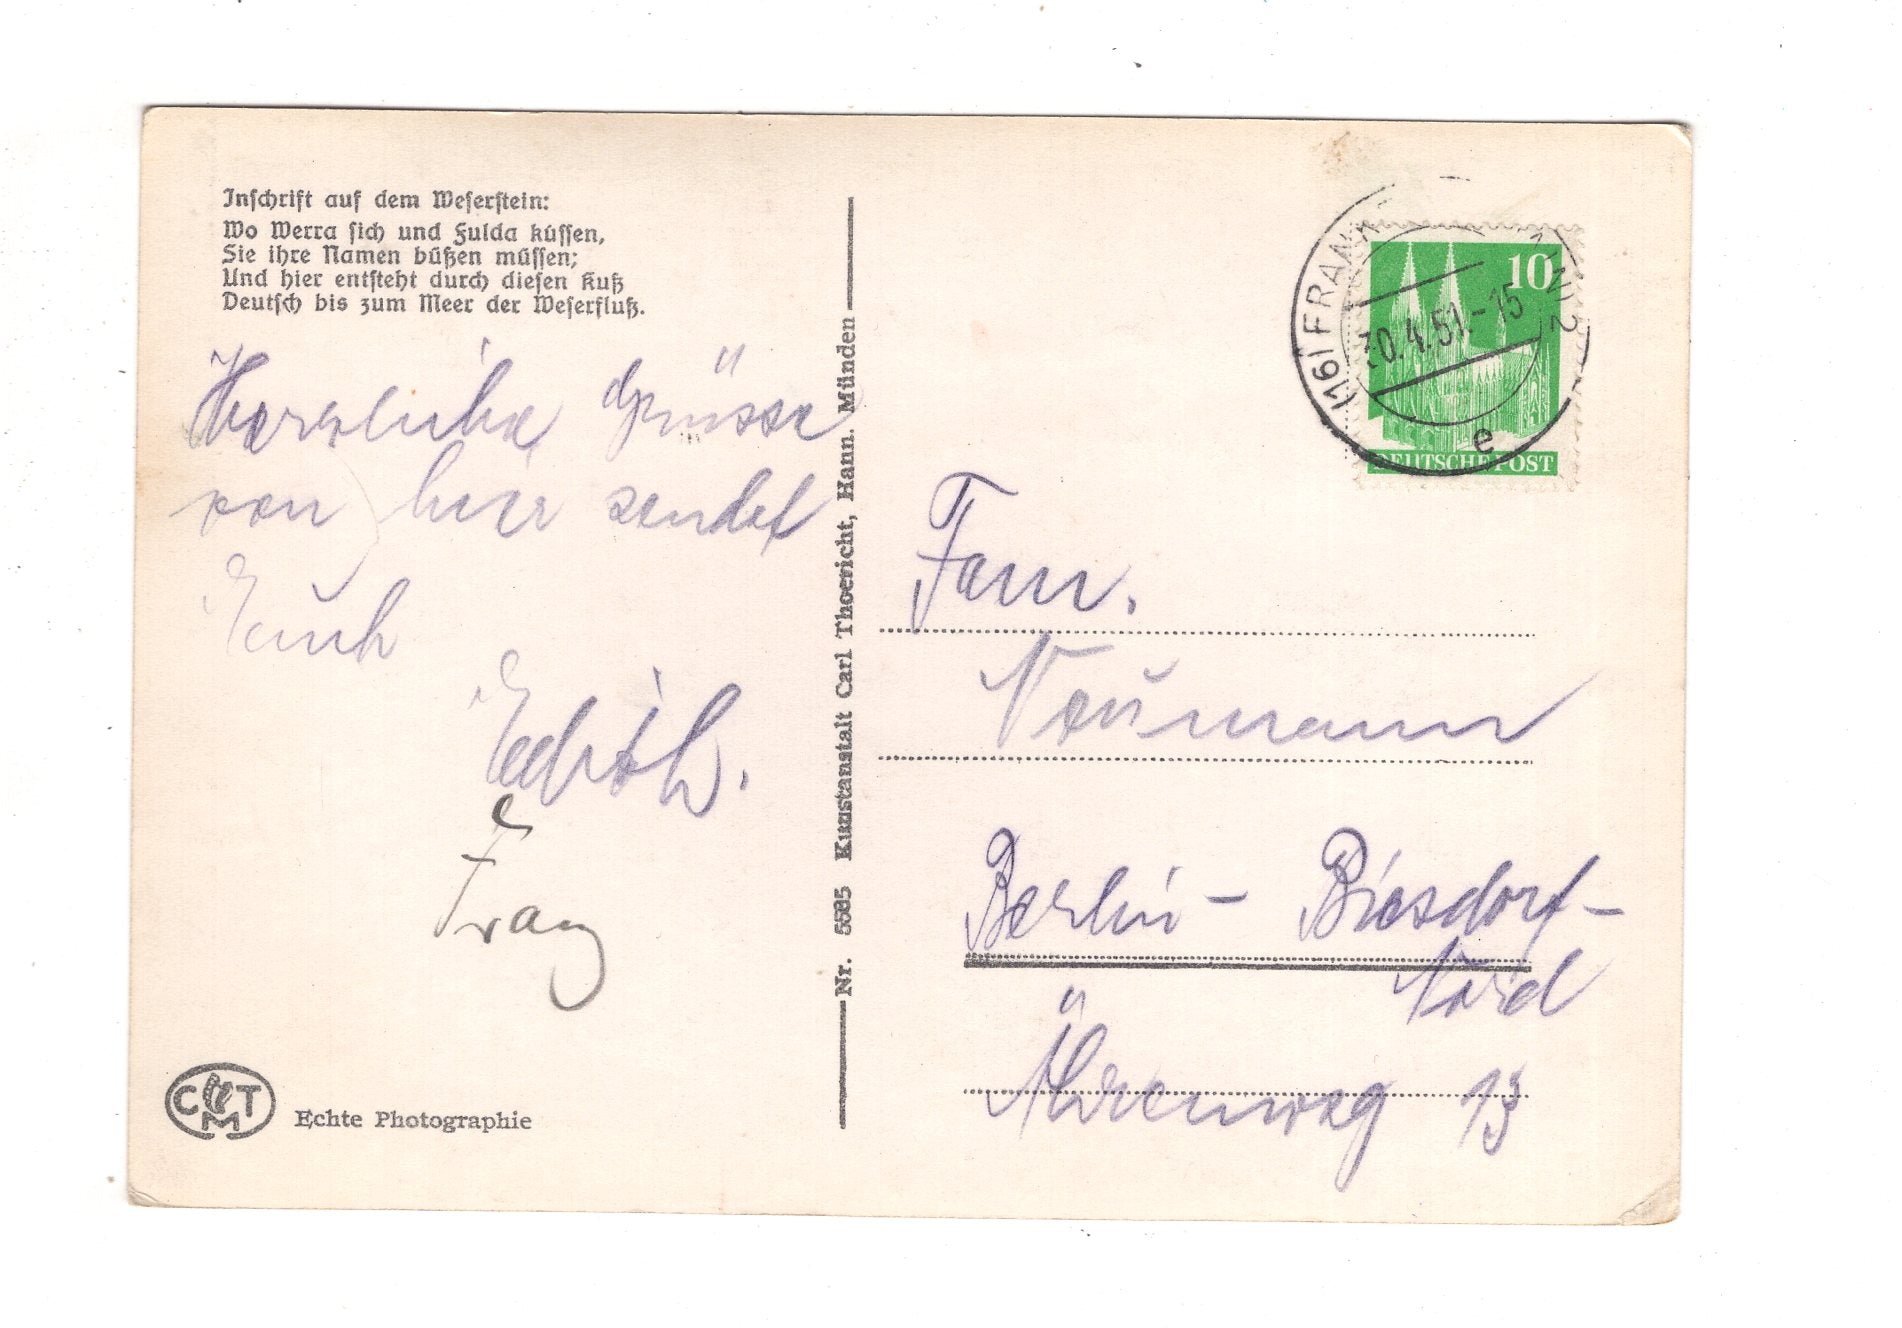 Inschrift auf dem Weserstein:
Wo Werra sich und Fulda küssen,
Sie ihre Namen büßen müssen;
Und hier entsteht durch diesen Kuß
Deutsch bis zum Meer der Weserfluß.
Herzliche Grüsse
von hier sendet
Euch
Edith.
Franz
CTM
Echte Photographie
Nr. 5585 Kunstanstalt Carl Thoericht, Hann. Münden
(16) FRANK
30.4.51.-15
e
10
DEUTSCHE POST
Fam.
Neumann
Berlin - Biesdorf-
Nord
Ährenweg 13